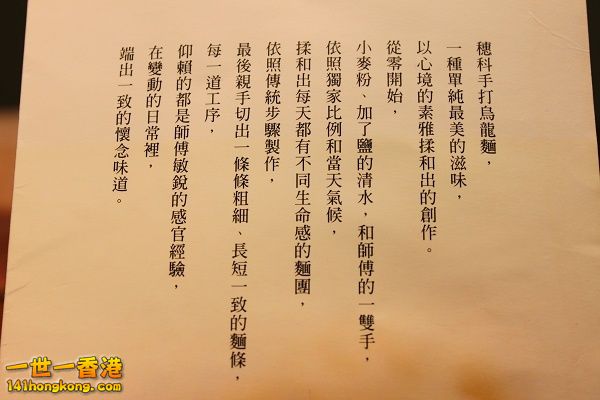 穗科手打烏龍麵，
一種單純最美的滋味，
以心境的素雅揉和出的創作。
從零開始，
小麥粉、加了鹽的清水，和師傅的一雙手，
依照獨家比例和當天氣候，
揉和出每天都有不同生命感的麵團，
依照傳統步驟製作，
最後親手切出一條條粗細、長短一致的麵條，
每一道工序，
仰賴的都是師傅敏銳的感官經驗，
在變動的日常裡，
端出一致的懷念味道。
一世一香港
141hongkong.com